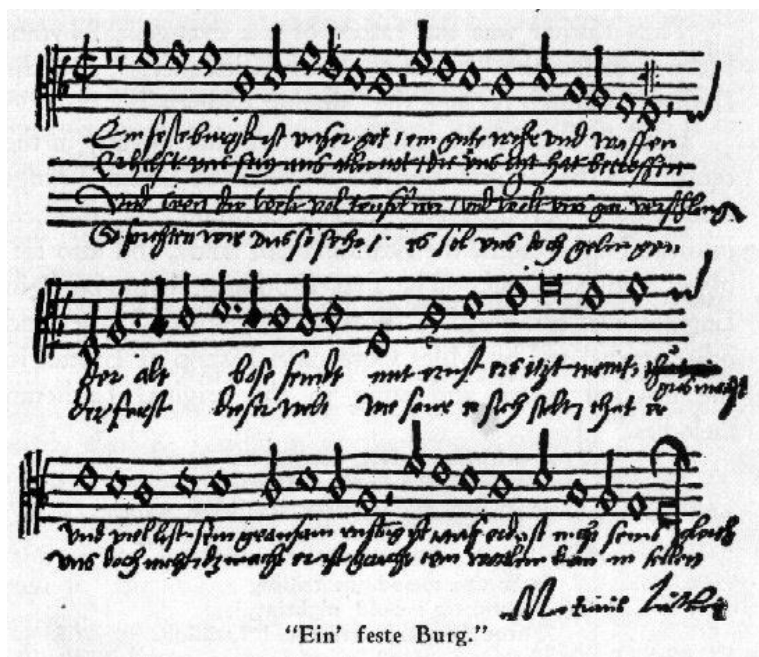 Ein feste burgk ist unser got / ein gute wehr und waffen
Er hilfft uns frey aus aller not / die uns itzt hat betroffen
Und wen die welt vol teuffel wer / und wolt uns gar verschling
So furchten wir uns so sehr / es sol uns doch gelingen
Der alt bose feindt mit ernst ers itzt meint / gros macht
der furst dieser welt wie saur er sich stelt thut er
und viel list sein grausam rustung ist auf erdt ist nicht seins gleich
uns doch nicht
Martinus Luther
"Ein' feste Burg."